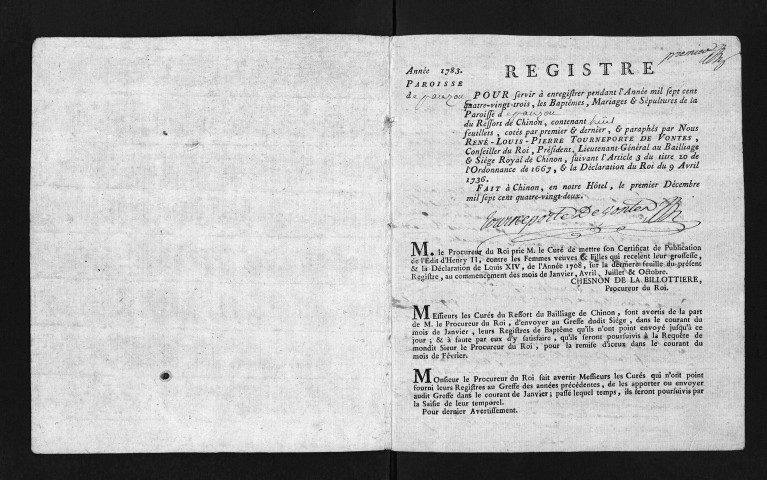 premier
Année 1783.
REGISTRE
PAROISSE
de panzou
POUR servir à enregistrer pendant l'Année mil sept cent
quatre-vingt-trois, les Baptêmes, Mariages & Sépultures de la
Paroisse de panzou
du Ressort de Chinon, contenant huit
feuillets, cotés par premier & dernier, & paraphés par Nous
RENÉ-LOUIS-PIERRE TOURNEPORTE DE VONTES,
Conseiller du Roi, Président, Lieutenant-Général au Bailliage
& Siége Royal de Chinon, suivant l'Article 3 du titre 20 de
l'Ordonnance de 1667, & la Déclaration du Roi du 9 Avril
1736.
FAIT à Chinon, en notre Hôtel, le premier Décembre
mil sept cent quatre-vingt-deux.
Tourneporte De Vontes
M. le Procureur du Roi prie M. le Curé de mettre son Certificat de Publication
de l'Edit d'Henry II, contre les Femmes veuves & Filles qui recelent leur grossesse,
& la Déclaration de Louis XIV, de l'Année 1708, sur la derniere feuille du présent
Registre, au commencement des mois de Janvier, Avril, Juillet & Octobre.
CHESNON DE LA BILLOTTIERE,
Procureur du Roi.
MEssieurs les Curés du Ressort du Bailliage de Chinon, sont avertis de la part
de M. le Procureur du Roi, d'envoyer au Greffe dudit Siége, dans le courant du
mois de Janvier, leurs Registres de Baptême qu'ils n'ont point envoyé jusqu'à ce
jour; & à faute par eux d'y satisfaire, qu'ils seront poursuivis à la Requête de
mondit Sieur le Procureur du Roi, pour la remise d'iceux dans le courant du
mois de Février.
MOnsieur le Procureur du Roi fait avertir Messieurs les Curés qui n'ont point
fourni leurs Registres au Greffe des années précédentes, de les apporter ou envoyer
audit Greffe dans le courant de Janvier; passé lequel temps, ils seront poursuivis par
la Saisie de leur temporel.
Pour dernier Avertissement.